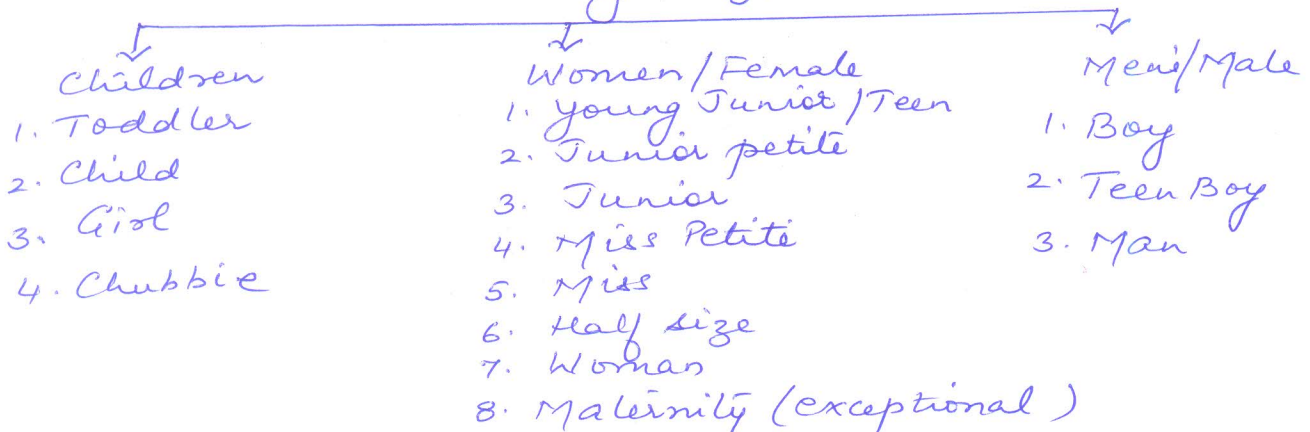 Children
1. Toddler
2. Child
3. Girl
4. Chubbie
Women/Female
1. Young Junior/Teen
2. Junior petite
3. Junior
4. Miss Petite
5. Miss
6. Half size
7. Woman
8. Maternity (exceptional)
Men's/Male
1. Boy
2. Teen Boy
3. Man